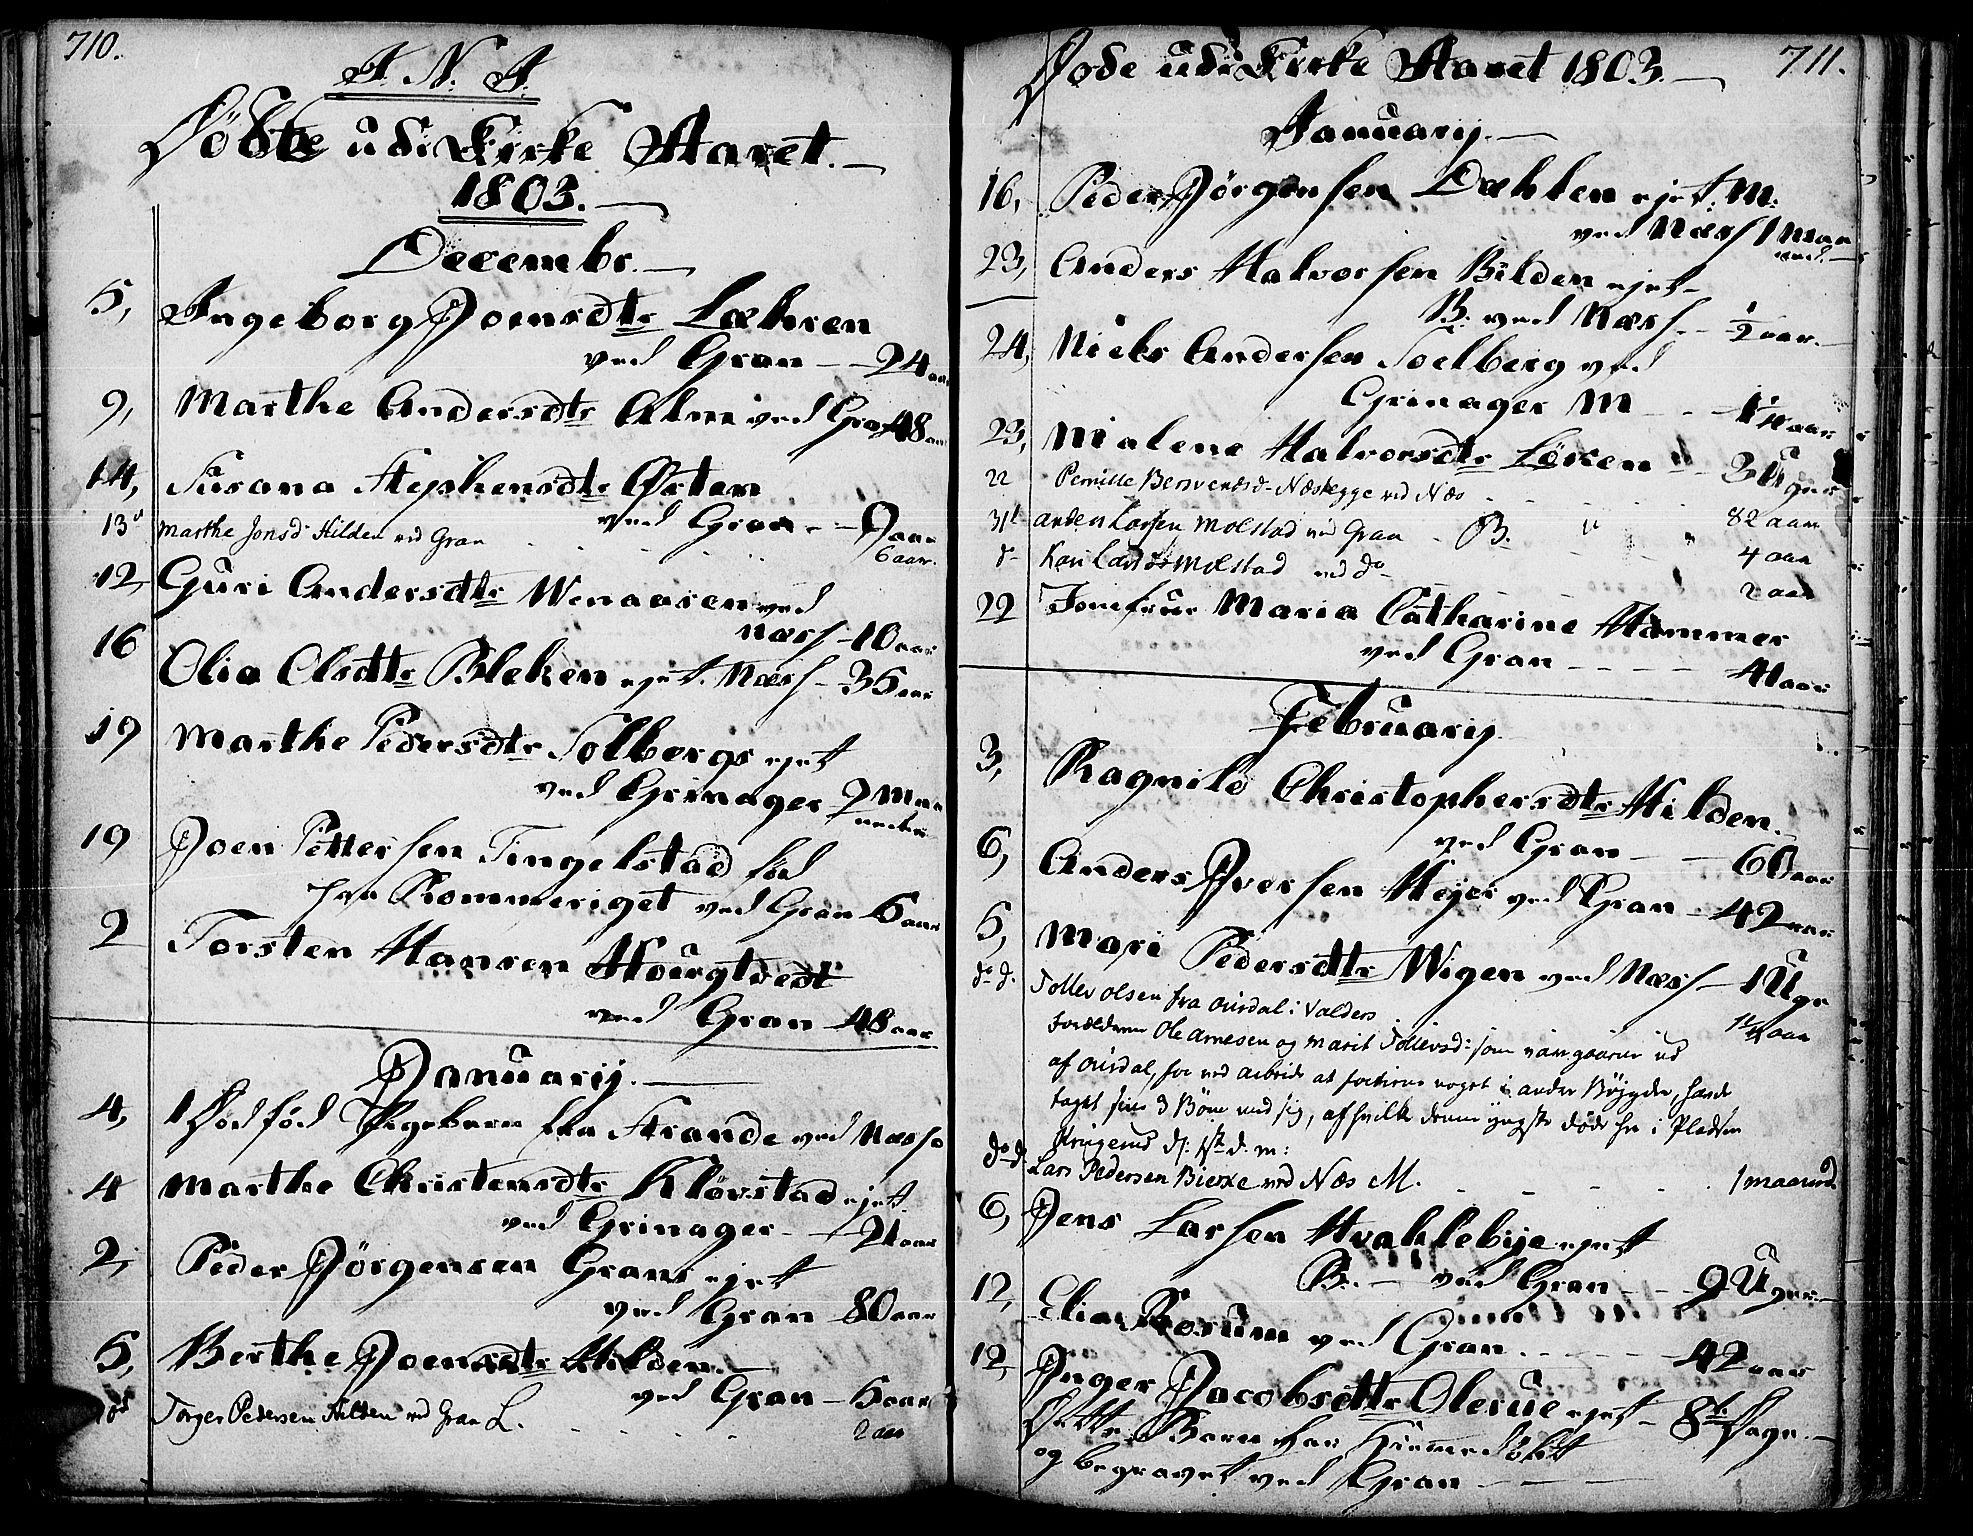 710.
J. N. J.
Döbte udi Kirke Aaret.
1803.
Decembr.
5, Ingeborg Joensdtr Læhren
ved Gran - 24 aar
9, Marthe Andersdtr Alm ved Gran 48 aar
14, Susana Stephensdtr Østen
ved Gran - 9 aar
13d Marthe Jonsd Hilden ved Gran 6 aar.
12, Guri Andersdtr Wenaasen ved
Næss - 10 aar
16 Olia Olsdtr Bleken ejet. Næss - 36 aar
19 Marthe Pedersdtr Solbergs ejet
ved Grinager 2 Maaneder
19 Joen Pettersen Tingelstad fød
fra Rommeriget ved Gran 6 aar
2 Torsten Hansen Hourgtvedt
ved Gran 48 aar
Januarij.
4, 1 Dödföd Pigebarn fra Strande ved Næss
4 Marthe Christensdtr Klövstad ejet.
ved Grinager - 21 aar
2, Peder Jörgensen Grans ejet
ved Gran 80 aar
5, Berthe Joensdtr Hilden
ved Gran - 5 aar
Torger Pedersen Hilden ved Gran L. 2 aar
711.
Døde udi Kirke Aaret 1803.
Januarij.
16, Peder Jörgensen Dæhlen ejet. M.
ved Næss 1 Maaned.
23, Anders Halvorsen Bilden ejet
B. ved Næss - 1/2 aar.
24, Niels Andersen Soelberg ved
Grinager M - - aar
23, Malene Halvorsdtr Löken - 3 Uger
22 Pernille Bersvendsd. Næskegge ved Næs 82 aar
31t Anders Larsen Molstad ved Gran - B. 4 aar
d- Kari Larsd Molstad ved do 2 aar
22 Jomfrue Maria Catharine Hammer
ved Gran - - - 41 aar
Februarij
3, Ragnild Christophersdtr Hilden
ved Gran - 60 aar
6, Anders Iversen Hejer ved Gran - 42 aar
5, Mari Pedersdtr Wigen ved Næss - 1 Uge
do d. Tollev Olsen fra Ourdal i Valders aar
Forældrene Ole Arnesen og Marit Tollevsd: som vare gaaene ud
af Ourdal, for ved Arbeide at fortiene noget i andre Böjgder, havde
taget sine 3 Börn med sig, af hvilke denne yngste döde her i Pladsen
Krugerud d: 1st d. m:
do d Lars Pedersen Bierke ved Næs M. 1 maaned
6, Jens Larsen Hvahlebye ejet
B. - ved Gran - 9 Uger
12, Elia Rosum ved Gran - - 42 aar
12, Inger Jacobsdtr Olerue ejet - 8te Dage.
Dette Barn har Hjemmedöbt
og begravet ved Gran